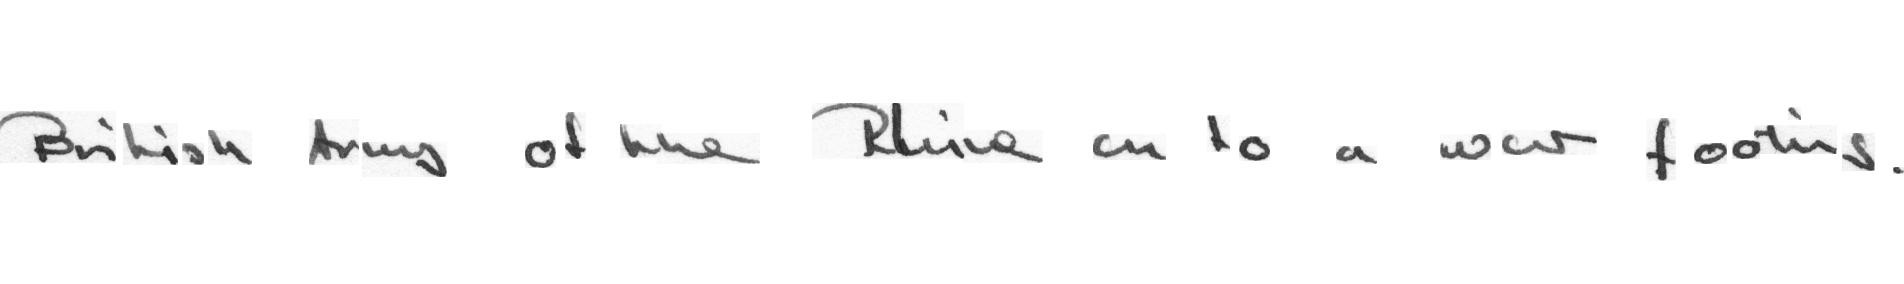 British Army of the Rhine on to a war footing.